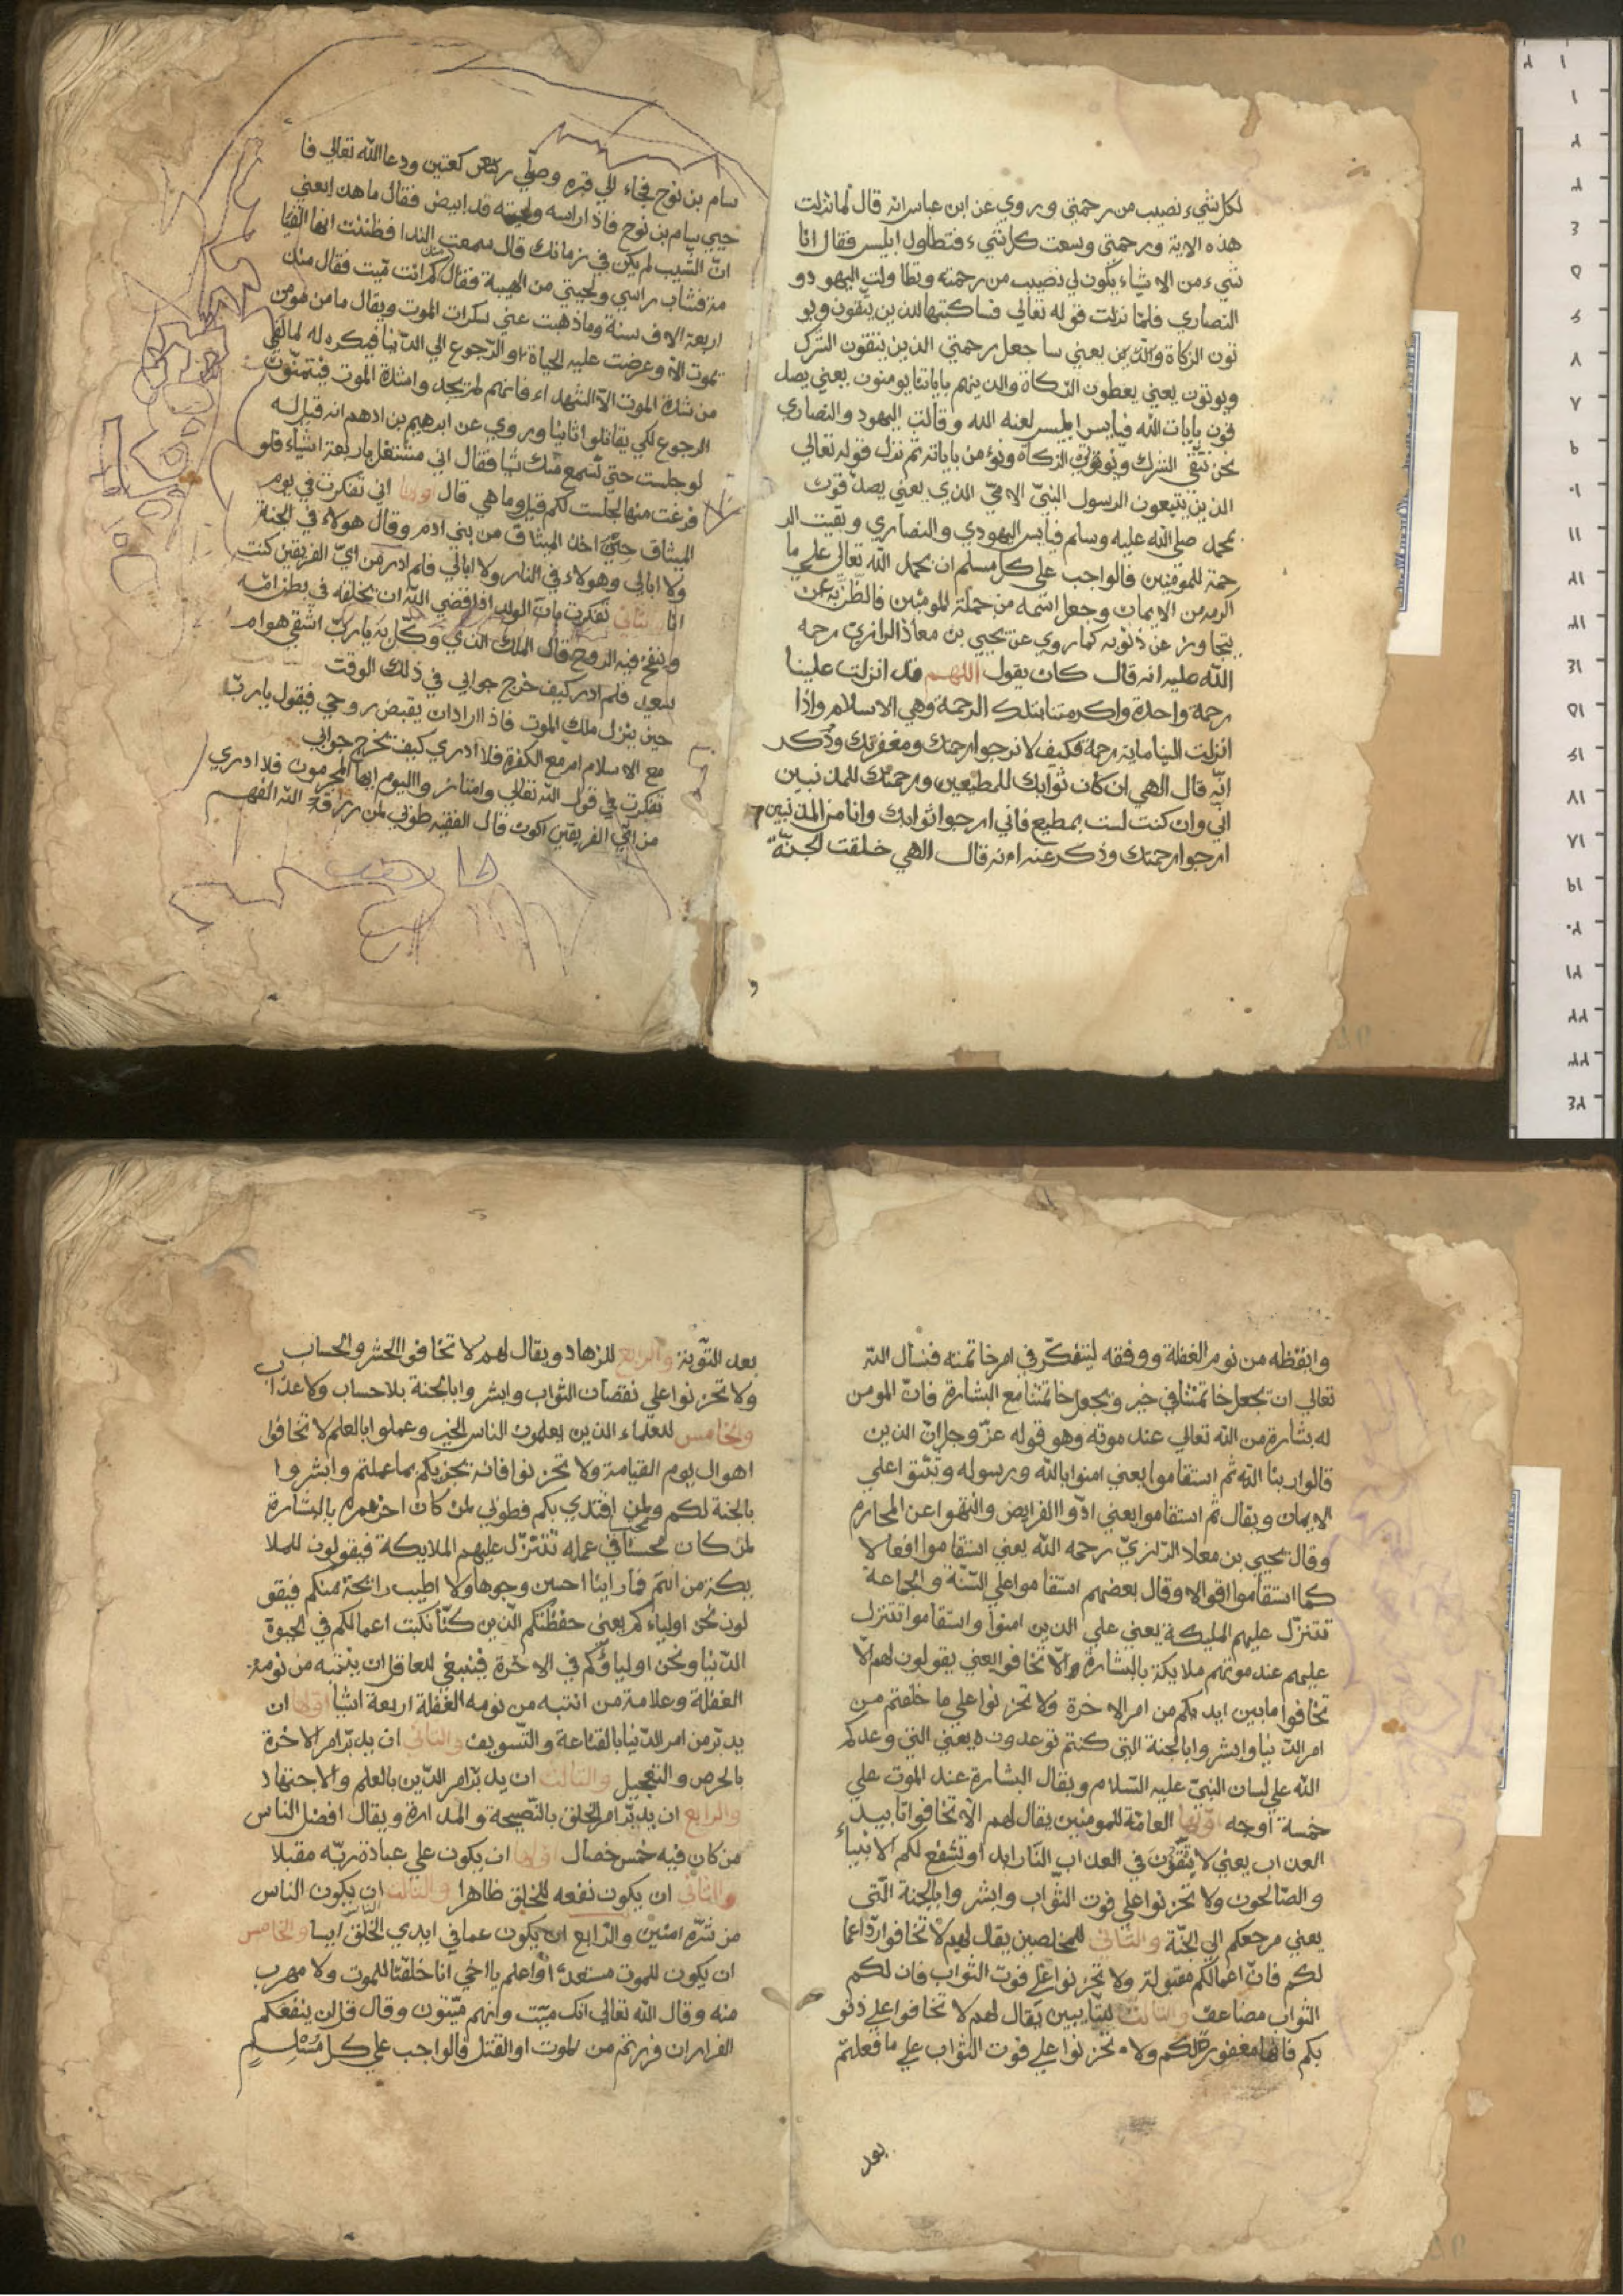 لكل شيء نصيب من رحمتي وروي عن ابن عباس انه قال لما نزلت
هذه الاية ورحمتي وسعت كل شيء فتطاول ابليس فقال انا
شيء من الاشياء يكون لي نصيب من رحمته وتطاولت اليهود و
النصاري فلما نزلت قوله تعالي فساكتبها للذين يتقون ويو
تون الزكاة والذين يعني ساجعل رحمتي الذين يتقون الشرك
ويوتون يعني يعطون الزكاة والذينهم باياتنا يومنون يعني يصد
قون بايات الله فيايس ابليس لعنه الله وقالت اليهود والنصاري
نحن نتقي الشرك ونوتون الزكاة ونؤمن باياته ثم نزل قوله تعالي
الذين يتبعون الرسول النبي الامي الذي يعني يصدقون
بمحمد صلي الله عليه وسلم فيايس اليهودي والنصاري وبقيت الر
حمة للمومنين فالواجب علي كل مسلم ان يحمد الله تعالي علي ما
اكرمه من الايمان وجعل اسمه من جملة المومنين
يتجاوز عن ذنوبه كما روي عن يحيي بن معاذ الرازي رحمه
الله عليه انه قال كان يقول اللهم قد انزلت علينا
رحمة واحدة واكرمتنا بتلك الرحمة وهي الاسلام واذا
انزلت الينا ماية رحمة فكيف لا نرجوا رحمتك ومغفرتك وذكر
انه قال الهي ان كان ثوابك للمطيعين ورحمتك للمذنبين
اني وان كنت لست بمطيع فاني ارجوا ثوابك وانا من المذنبين
ارجوا رحمتك وذكر عنه انه قال الهي خلقت الجنة
و
سام بن نوح فجاء الي قبره وصلي ركعتين ودعا الله تعالي فا
حيي سام بن نوح فاذا راسه ولحيته قد ابيض فقال ما هذا يعني
ان الشيب لم يكن في زمانك قال سمعت الندا فظننت انها القيا
مة فشاب راسي ولحيتي من الهيبة فقال كم انت ميت فقال منذ
اربعة الاف سنة وما ذهبت عني سكرات الموت ويقال ما من مومن
يموت الا وعرضت عليه الحياة او الرجوع الي الدنيا فيكره له لما لقي
من شدة الموت الا الشهداء فانهم لم يجدوا شدة الموت فيتمنون
الرجوع لكي يقاتلوا ثانيا وروي عن ابرهيم بن ادهم انه قيل له
لو جلست حتي نسمع منك شيا فقال اني مشتغل باربعة اشياء فلو
فرغت منها لجلست لكم قيل وما هي قال اولها اني تفكرت في يوم
الميثاق حين اخذ الميثاق من بني ادم وقال هولاء في الجنة
ولا ابالي وهولاء في النار ولا ابالي فلم ادر من اي الفريقين كنت
انا والثاني تفكرت بان الولد اذا قضي الله ان يخلقه في بطن امه
ونفخ فيه الروح فقال الملك الذي وكل به يارب اشقي هو ام
سعيد فلم ادر كيف خرج جوابي في ذلك الوقت
حين ينزل ملك الموت فاذا اراد ان يقبض روحي فيقول يارب
مع الاسلام ام مع الكفرة فلا ادري كيف يخرج جوابي
تفكرت في قول الله تعالي وامتازوا اليوم ايها المجرمون فلا ادري
من اي الفريقين اكون قال الفقيه طوبي لمن رزقه الله الفهم
وايقظه من نوم الغفلة ووفقه ليتفكر في امر خاتمته فنسال الله
تعالي ان يجعل خاتمتنا في خير ويجعل خاتمتنا مع البشارة فان المومن
له بشارة من الله تعالي عند موته وهو قوله عز وجل ان الذين
قالوا ربنا الله ثم استقاموا يعني امنوا بالله ورسوله وثبتوا علي
الايمان ويقال ثم استقاموا يعني ادوا الفرايض وانتهوا عن المحارم
وقال يحيي بن معاذ الرازي رحمه الله يعني استقاموا افعالا
كما استقاموا اقوالا وقال بعضهم استقاموا علي السنة والجماعة
تتنزل عليهم الملايكة يعني علي الذين امنوا واستقاموا تتنزل
عليهم عند موتهم ملايكة بالبشارة الا تخافوا يعني يقولون لهم لا
تخافوا ما بين ايديكم من امر الاخرة ولا تحزنوا علي ما خلفتم من
امر الدنيا وابشروا بالجنة التي كنتم توعدون يعني التي وعدكم
الله علي لسان النبي عليه السلام ويقال البشارة عند الموت علي
خمسة اوجه اولها العامة للمومنين يقال لهم الا تخافوا تابيد
العذاب يعني لا تبقون في العذاب النار ابد او تشفع لكم الانبياء
والصالحون ولا تحزنوا علي فوت الثواب وابشروا بالجنة التي
يعني مرجعكم الي الجنة والثاني للمخلصين يقال لهم لا تخافوا رد اعما
لكم فان اعمالكم مقبولة ولا تحزنوا علي فوت الثواب فان لكم
الثواب مضاعف والثالث للتايبين يقال لهم لا تخافوا علي ذنو
بكم فانها مغفورة لكم ولا تحزنوا علي فوت الثواب علي ما فعلتم
بعد
بعد التوبة والرابع للزهاد ويقال لهم لا تخافوا الحشر والحساب
ولا تحزنوا علي نقصان الثواب وابشروا بالجنة بلا حساب ولا عذاب
والخامس للعلماء الذين يعلمون الناس الخير وعملوا بالعلم لا تخافوا
اهوال يوم القيامة ولا تحزنوا فانه يجزيكم بما عملتم وابشروا
بالجنة لكم ولمن اقتدي بكم فطوبي لمن كان اخر عمره بالبشارة
لمن كان محسنا في عمله تتنزل عليهم الملايكة فيقولون للملا
يكة من انتم فما راينا احسن وجوها ولا اطيب رايحة منكم فيقو
لون نحن اولياءكم يعني حفظتكم الذين كنا نكتب اعمالكم في الحيوة
الدنيا ونحن اولياؤكم في الاخرة فينبغي للعاقل ان ينتبه من نومة
الغفلة وعلامة من انتبه من نومه الغفلة اربعة اشيا اولها ان
يدبر من امر الدنيا بالقناعة والتسويف والثاني ان يدبر امر الاخرة
بالحرص والتعجيل والثالث ان يدبر امر الدين بالعلم والاجتهاد
والرابع ان يدبر امر الخلق بالنصيحة والمدارة ويقال افضل الناس
من كان فيه خمس خصال اولها ان يكون علي عبادة ربه مقبلا
والثاني ان يكون نفعه للخلق ظاهرا والثالث ان يكون الناس
من شره امنين والرابع ان يكون عما في ايدي الخلق ايسا والخامس
ان يكون للموت مستعدا واعلم يا اخي انا خلقنا للموت ولا مهرب
منه وقال الله تعالي انك ميت وانهم ميتون وقال قل لن ينفعكم
الفرار ان فررتم من الموت او القتل فالواجب علي كل مسلم